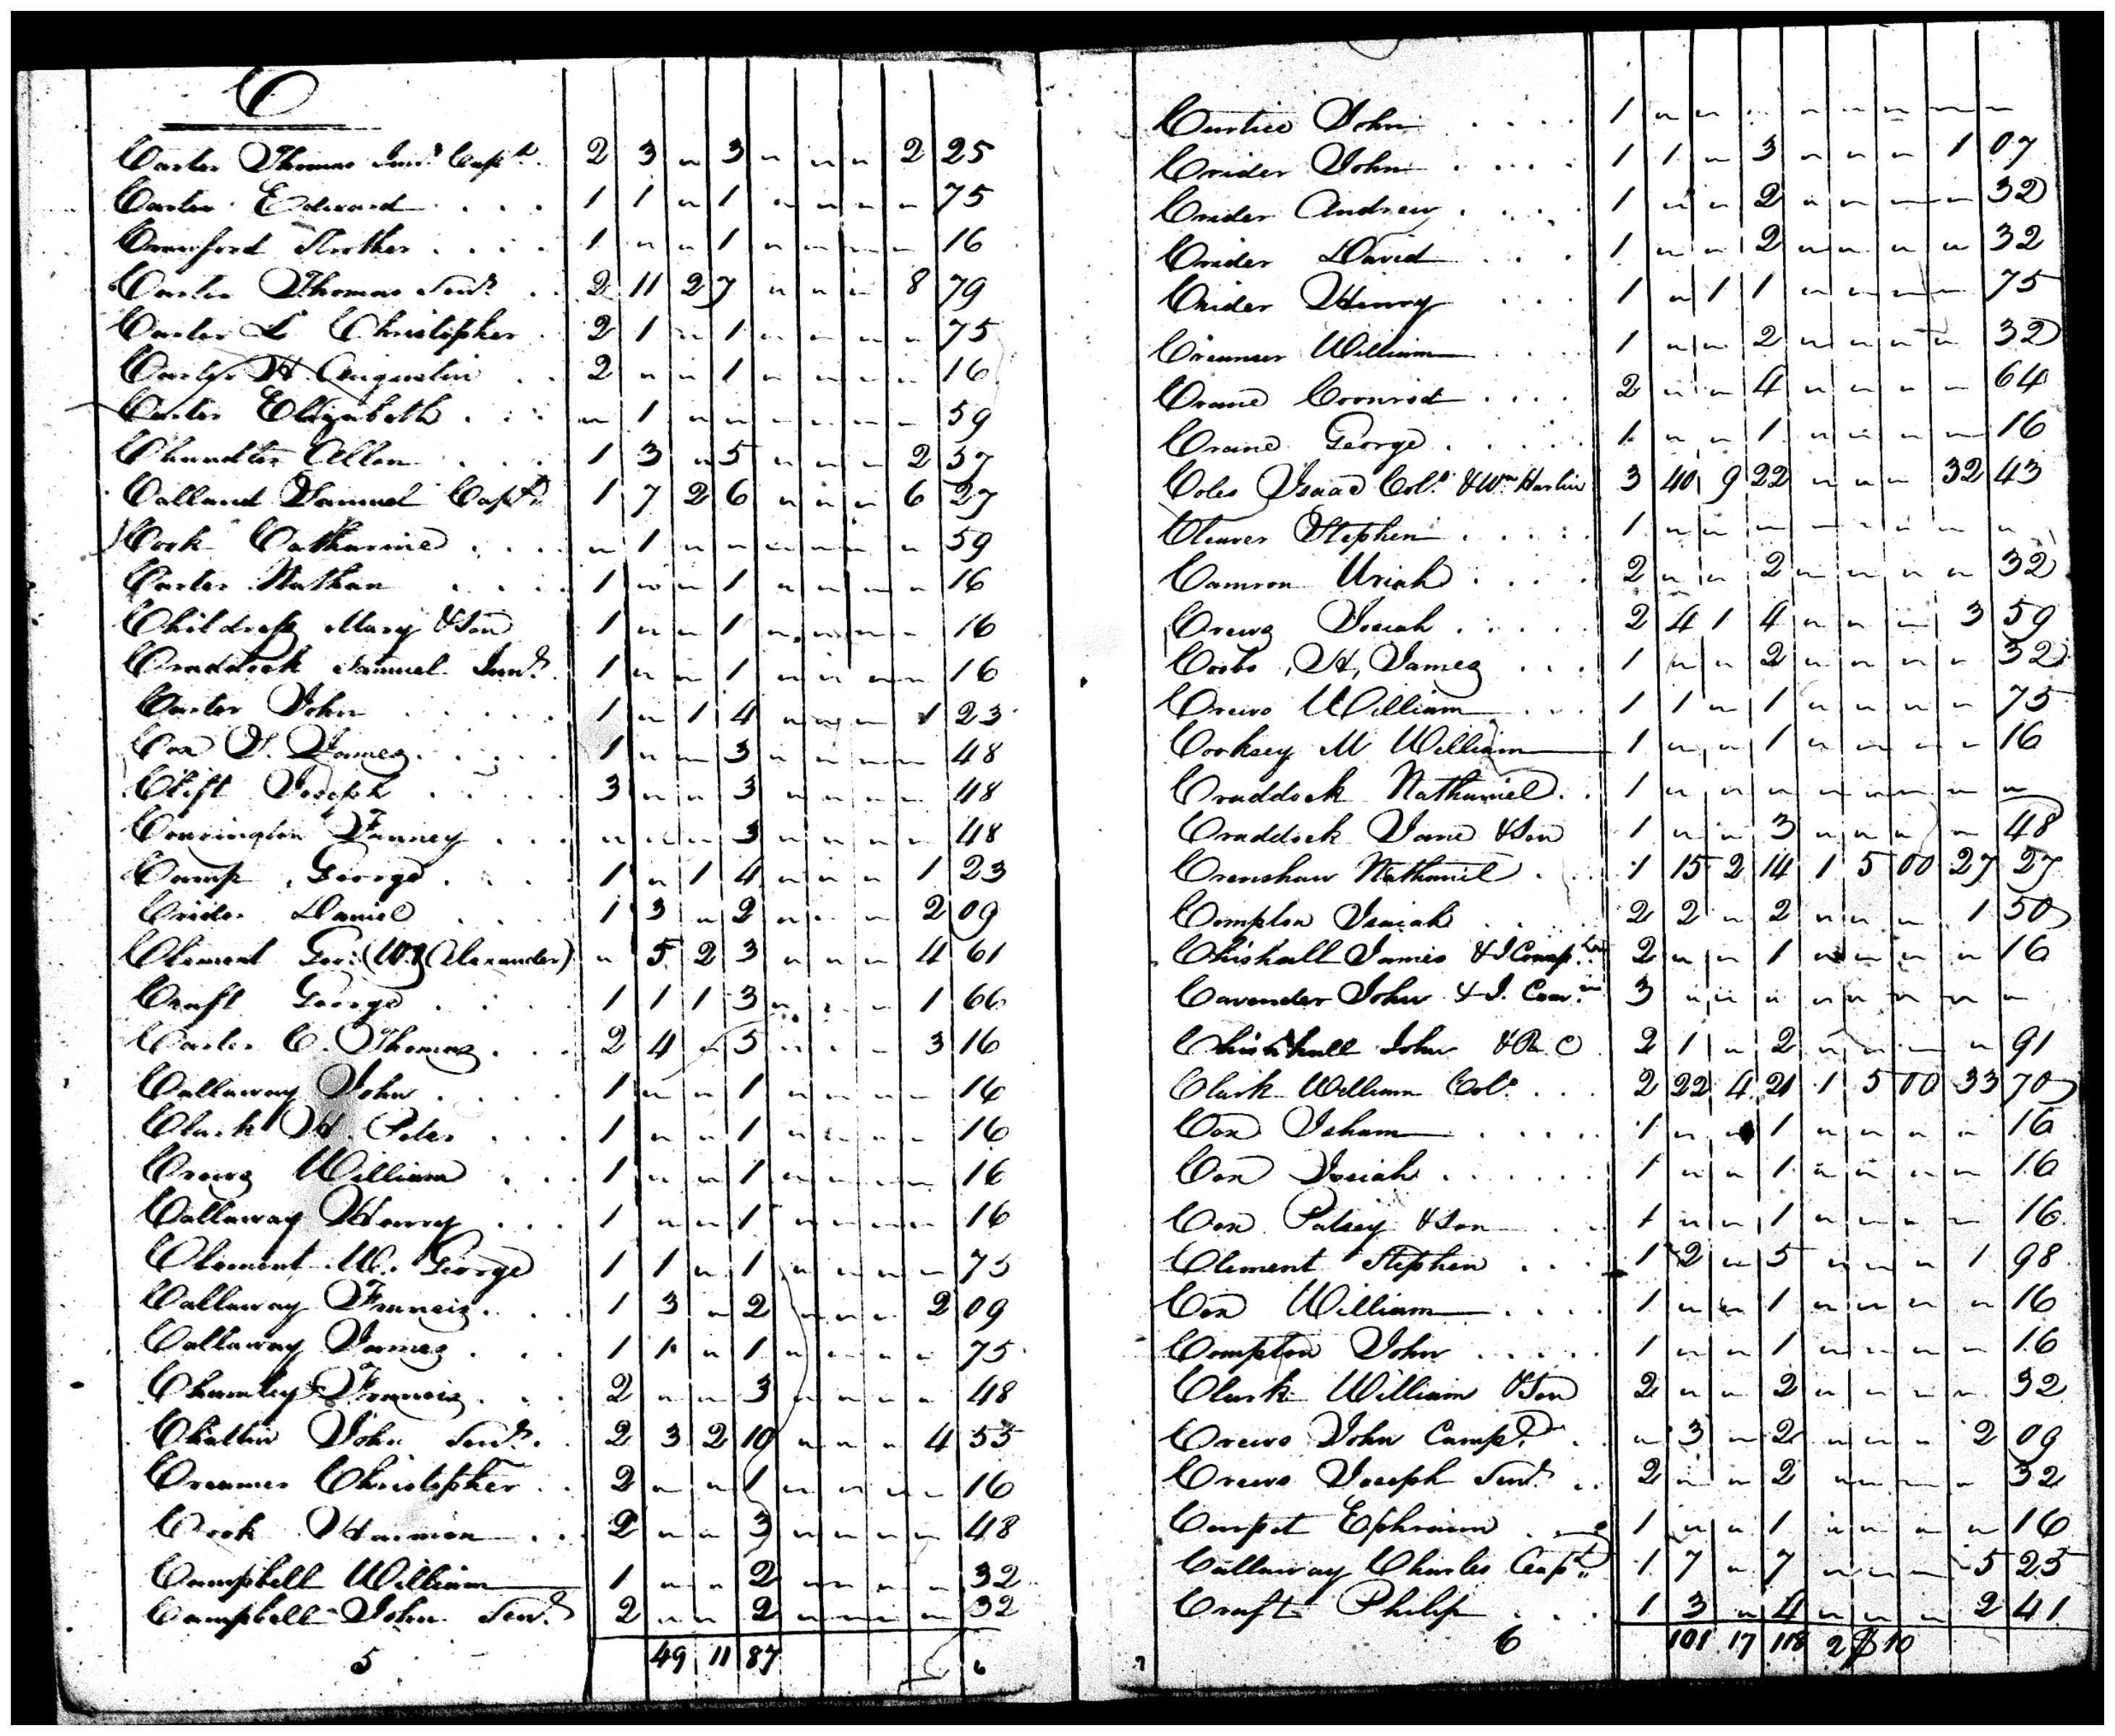 C
Carter Thomas Junr. Capt. 2 3 " 3 " " " 2 25
Carter Edward . . . 1 1 " 1 " " " " 75
Crawford Strother . . . . 1 " " 1 " " " " 16
Carter Thomas Senr. . . 2 11 2 7 " " " 8 79
Carter L Christopher . 2 1 " 1 " " " " 75
Carter H. . . 2 " " 1 " " " " 16
Carter Elizabeth . . . " 1 " " " " " " 59
Chandler Allen . . . 1 3 " 5 " " " 2 57
Calland Samuel Capt. 1 7 2 6 " " " 6 27
Cook Catharine . . . . " 1 " " " " " " 59
Carter Nathan . . . . 1 " " 1 " " " " 16
Childress Mary & Son 1 " " 1 " " " " 16
Craddock Samuel Junr. 1 " " 1 " " " " 16
Carter John . . . . . 1 " 1 4 " " " 1 23
Cox James . . . . . 1 " " 3 " " " " 48
Clift Joseph . . . . . 3 " " 3 " " " " 48
Fanney . . . " " " 3 " " " " 48
Camp George . . . . 1 " 1 4 " " " 1 23
Crider Daniel . . . . 1 3 " 2 " " " 2 09
Clement Geo: (W. Alexander) " 5 2 3 " " " 4 61
Craft George . . . . 1 1 1 3 " " " 1 66
Carter C. Thomas . . . 2 4 " 5 " " " 3 16
Callaway John . . . . 1 " " 1 " " " " 16
Clark H. Peter . . . 1 " " 1 " " " " 16
Crews William . . . 1 " " 1 " " " " 16
Callaway Henry . . . 1 " " 1 " " " " 16
Clement W. George 1 1 " 1 " " " " 75
Callaway Francis . . . 1 3 " 2 " " " 2 09
Callaway James . . . 1 1 " 1 " " " " 75
Chumley Francis . . . 2 " " 3 " " " " 48
Chattin John Senr. . 2 3 2 10 " " " 4 55
Creamer Christopher . . 2 " " 1 " " " " 16
Cook Harmon . . 2 " " 3 " " " " 48
Campbell William 1 " " 2 " " " " 32
Campbell John Senr. 2 " " 2 " " " " 32
5 49 11 87
Curtice John . . . . 1 " " " " " " " "
Crider John . . . . 1 1 " 3 " " " 1 07
Crider Andrew . . . . 1 " " 2 " " " " 32
Crider David . . . 1 " " 2 " " " " 32
Crider Henry . . . 1 " 1 1 " " " " 75
William . . . 1 " " 2 " " " " 32
Crane Coonrod . . . . 2 " " 4 " " " " 64
Crane George . . . . . 1 " " 1 " " " " 16
Coles Isaac Colo. & Wm Harlin 3 40 9 22 " " " 32 43
Cleaver Stephen . . . . 1 " " " " " " " "
Camron Uriah . . . . 2 " " 2 " " " " 32
Crews Josiah . . . . . 2 4 1 4 " " " 3 59
H, James . . . 1 " " 2 " " " " 32
Crews William . . . 1 1 " 1 " " " " 75
Cooksey M William 1 " " 1 " " " " 16
Craddock Nathaniel . . 1 " " " " " " " "
Craddock Jane & Son 1 " " 3 " " " " 48
Crenshaw Nathaniel . . 1 15 2 14 1 5 00 27 27
Compton Isaiah . . . 2 2 " 2 " " " 1 50
Chishall James & J Comp.ton 2 " " 1 " " " " 16
Cavender John & J. 3 " " " " " " " "
Chishall John & R C 2 1 " 2 " " " " 91
Clark William Colo. . . . 2 22 4 21 1 5 00 33 70
Cox Isham . . . . . 1 " " 1 " " " " 16
Cox Josiah . . . . . . 1 " " 1 " " " " 16
Cox Patsey & Son . . 1 " " 1 " " " " 16
Clement Stephen . . . 1 2 " 5 " " " 1 98
Cox William . . . . 1 " " 1 " " " " 16
Compton John . . . . . 1 " " 1 " " " " 16
Clark William & Son 2 " " 2 " " " " 32
Crews John Camp. . " 3 " 2 " " " 2 09
Crews Joseph Senr. . . 2 " " 2 " " " " 32
Ephraim . . 1 " " 1 " " " " 16
Callaway Charles Capt. 1 7 " 7 " " " 5 25
Craft Philip . . . 1 3 " 4 " " " 2 41
6 101 17 118 2 $ 10